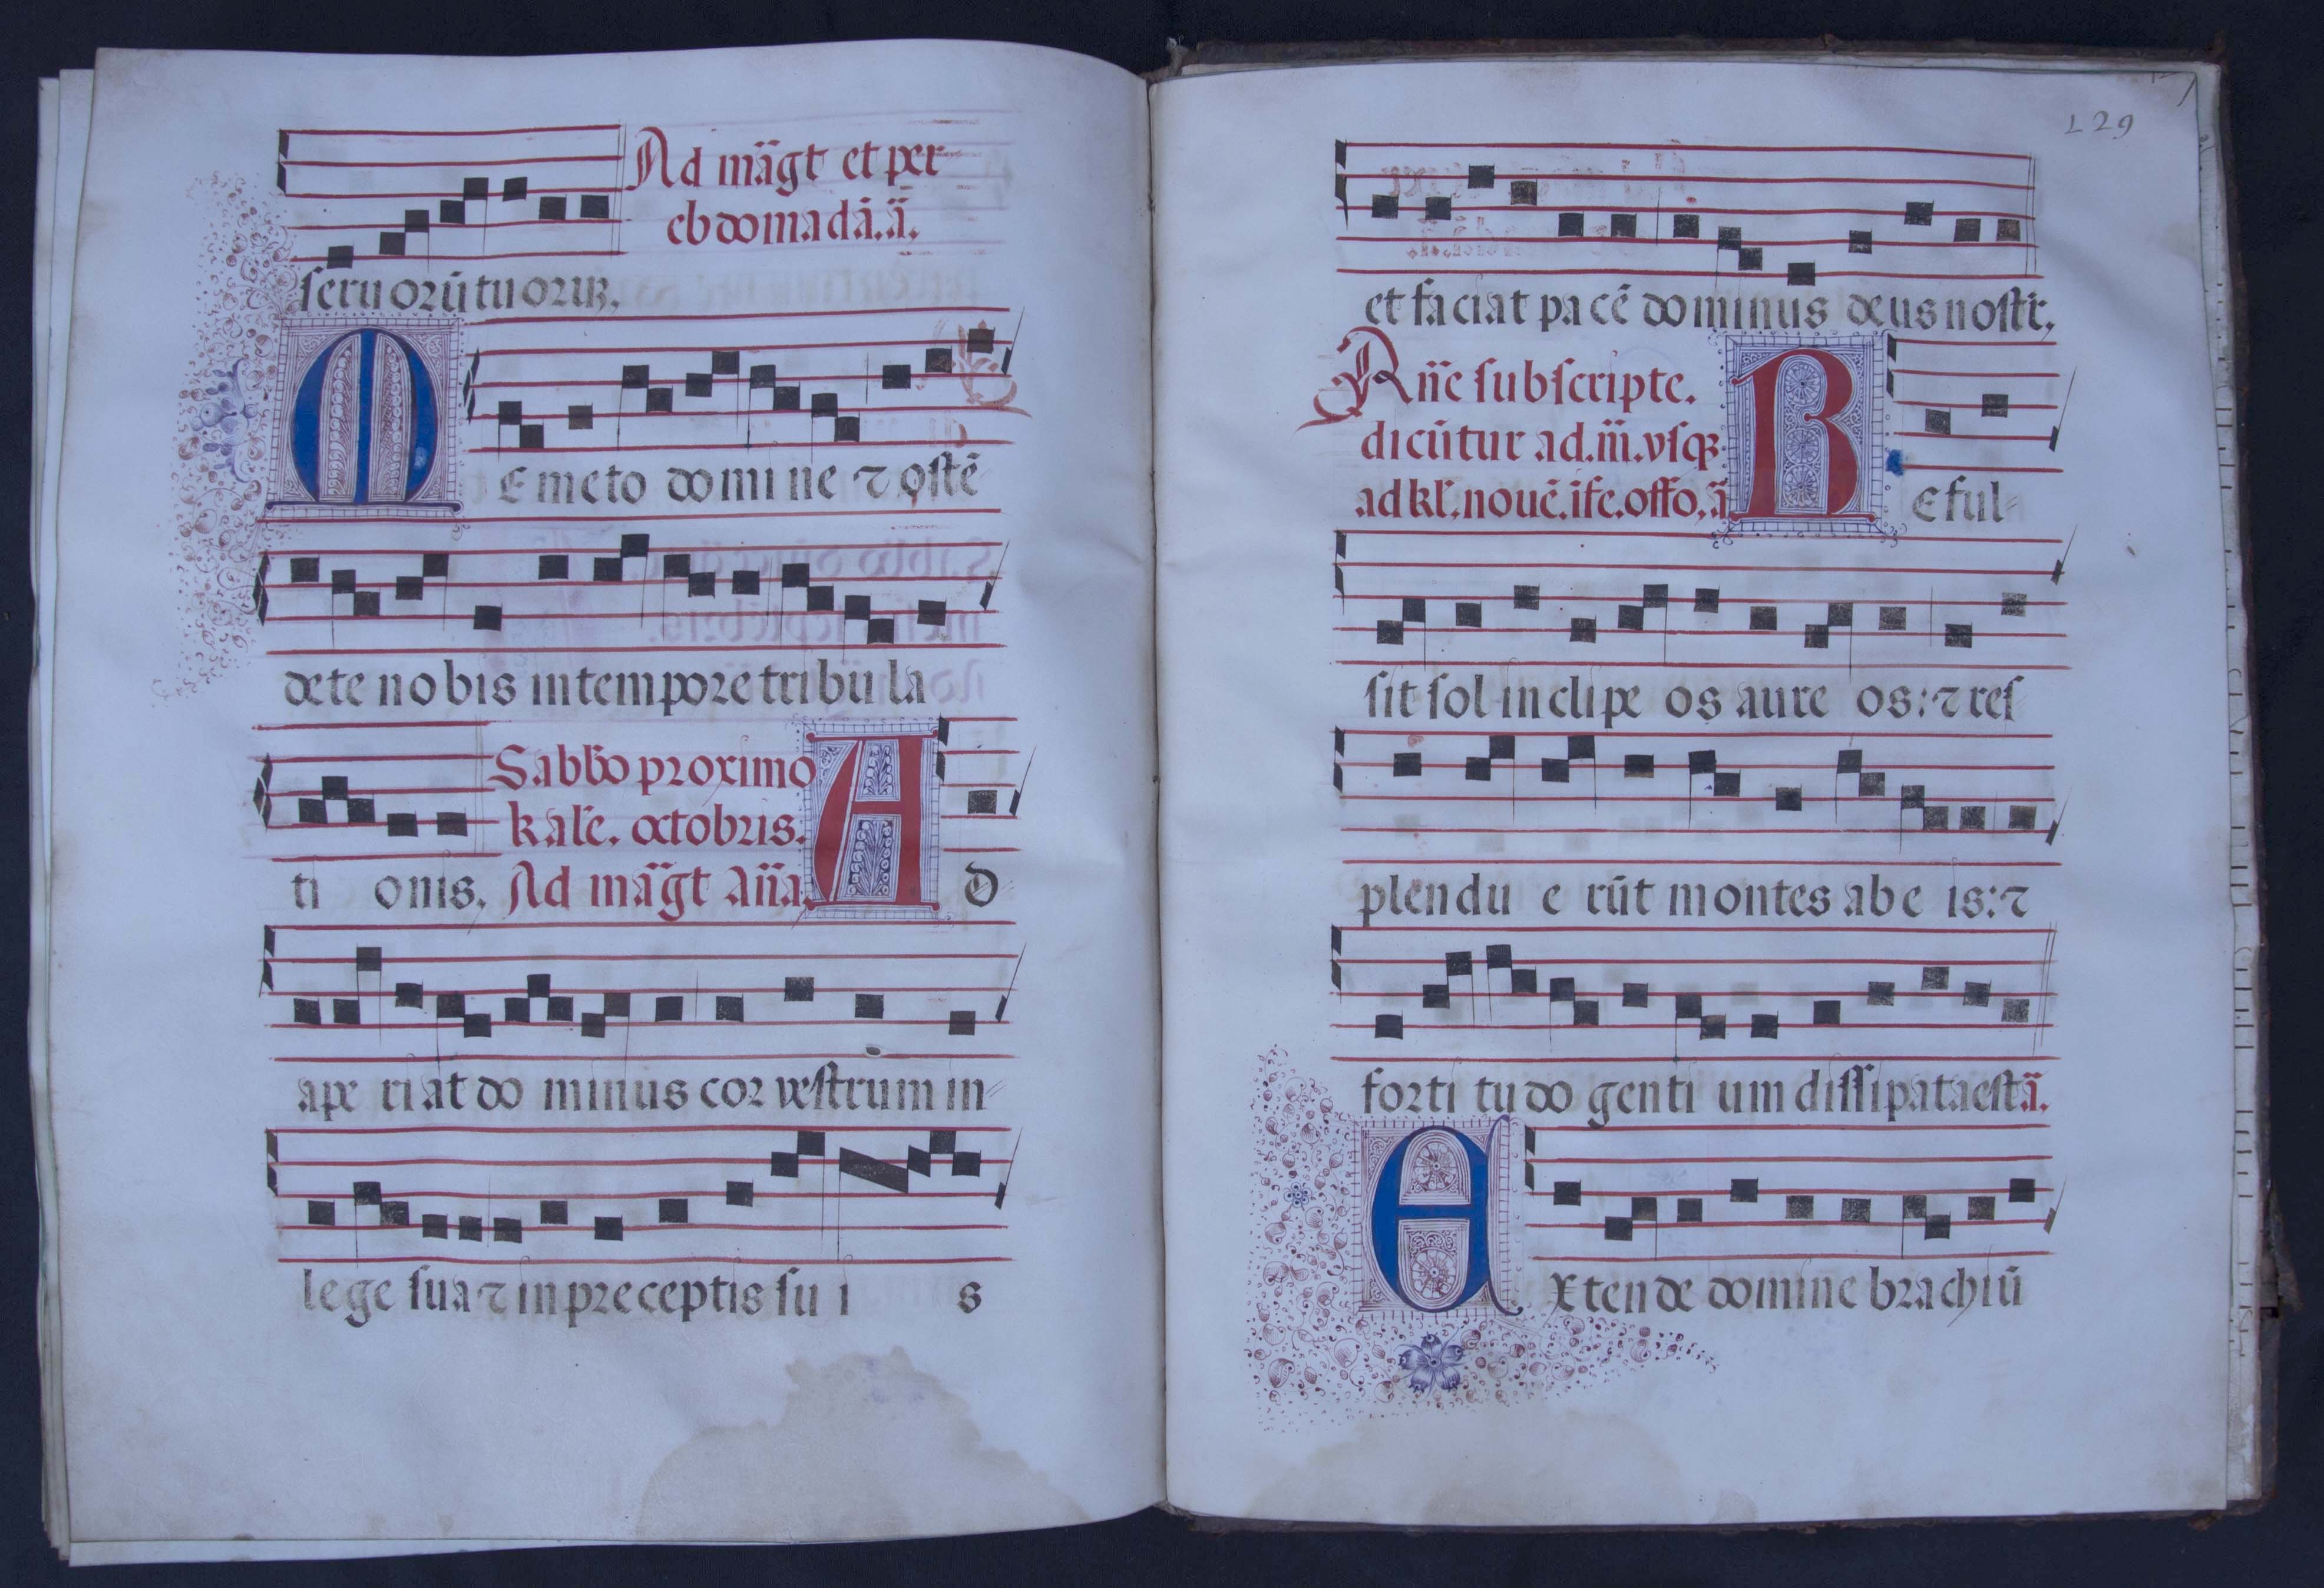 Ad mãgt et per
ebdomadã.ã.
seruorũ tuorꝝ.
MEmeto domine ⁊ ostẽ-
de te nobis in tempore tribula
Sabbo proximo
kalẽ. octobris.
tionis. Ad mãgt Añа. AD
aperiat dominus cor vestrum in-
lege sua ⁊ in preceptis suis
129
et faciat pacẽ dominus deus nostr̃.
Añe subscripte.
dicũtur ad.m̃.vsqꝫ
ad kl̃.nouẽ.ife.offo.ã BEful-
sit sol in clipeos aureos: ⁊ res
plenduerũt montes ab eis: ⁊
fortitudo gentium dissipata est ã.
Extende domine brachiũ